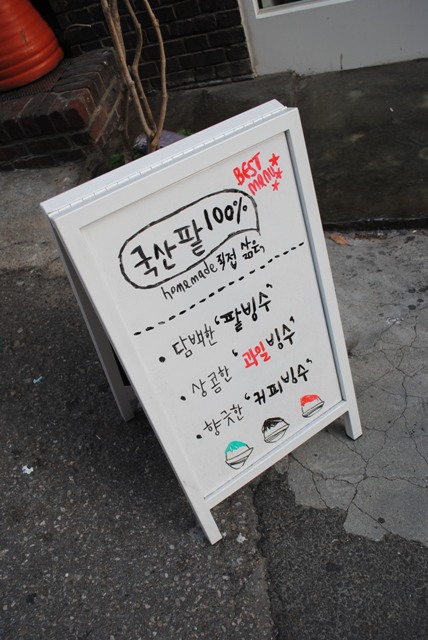 BEST
menu
국산팥100%
homemade 직접 삶은,
• 담백한 '팥빙수'
• 상콤한 '과일빙수'
• 향긋한 '커피빙수'